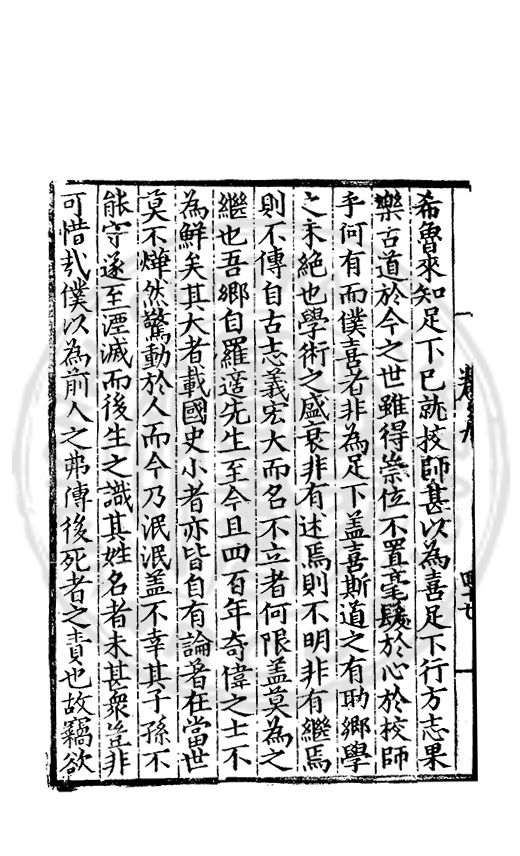 希魯來知足下已就校師甚以為喜足下行方志果
樂古道於今之世雖得崇位不置毫髮於心於校師
乎何有而僕喜者非為足下盖喜斯道之有助鄉學
之未絶也學術之盛衰非有述焉則不明非有繼焉
則不傳自古志義宏大而名不立者何限盖莫為之
繼也吾鄉自羅適先生至今且四百年奇偉之士不
為鮮矣其大者載國史小者亦皆自有論著在當世
莫不燁然驚動於人而今乃泯泯盖不幸其子孫不
能守遂至湮滅而後生之識其姓名者未甚衆豈非
可惜哉僕以為前人之弗傳後死者之責也故竊欲
卷九
四十七